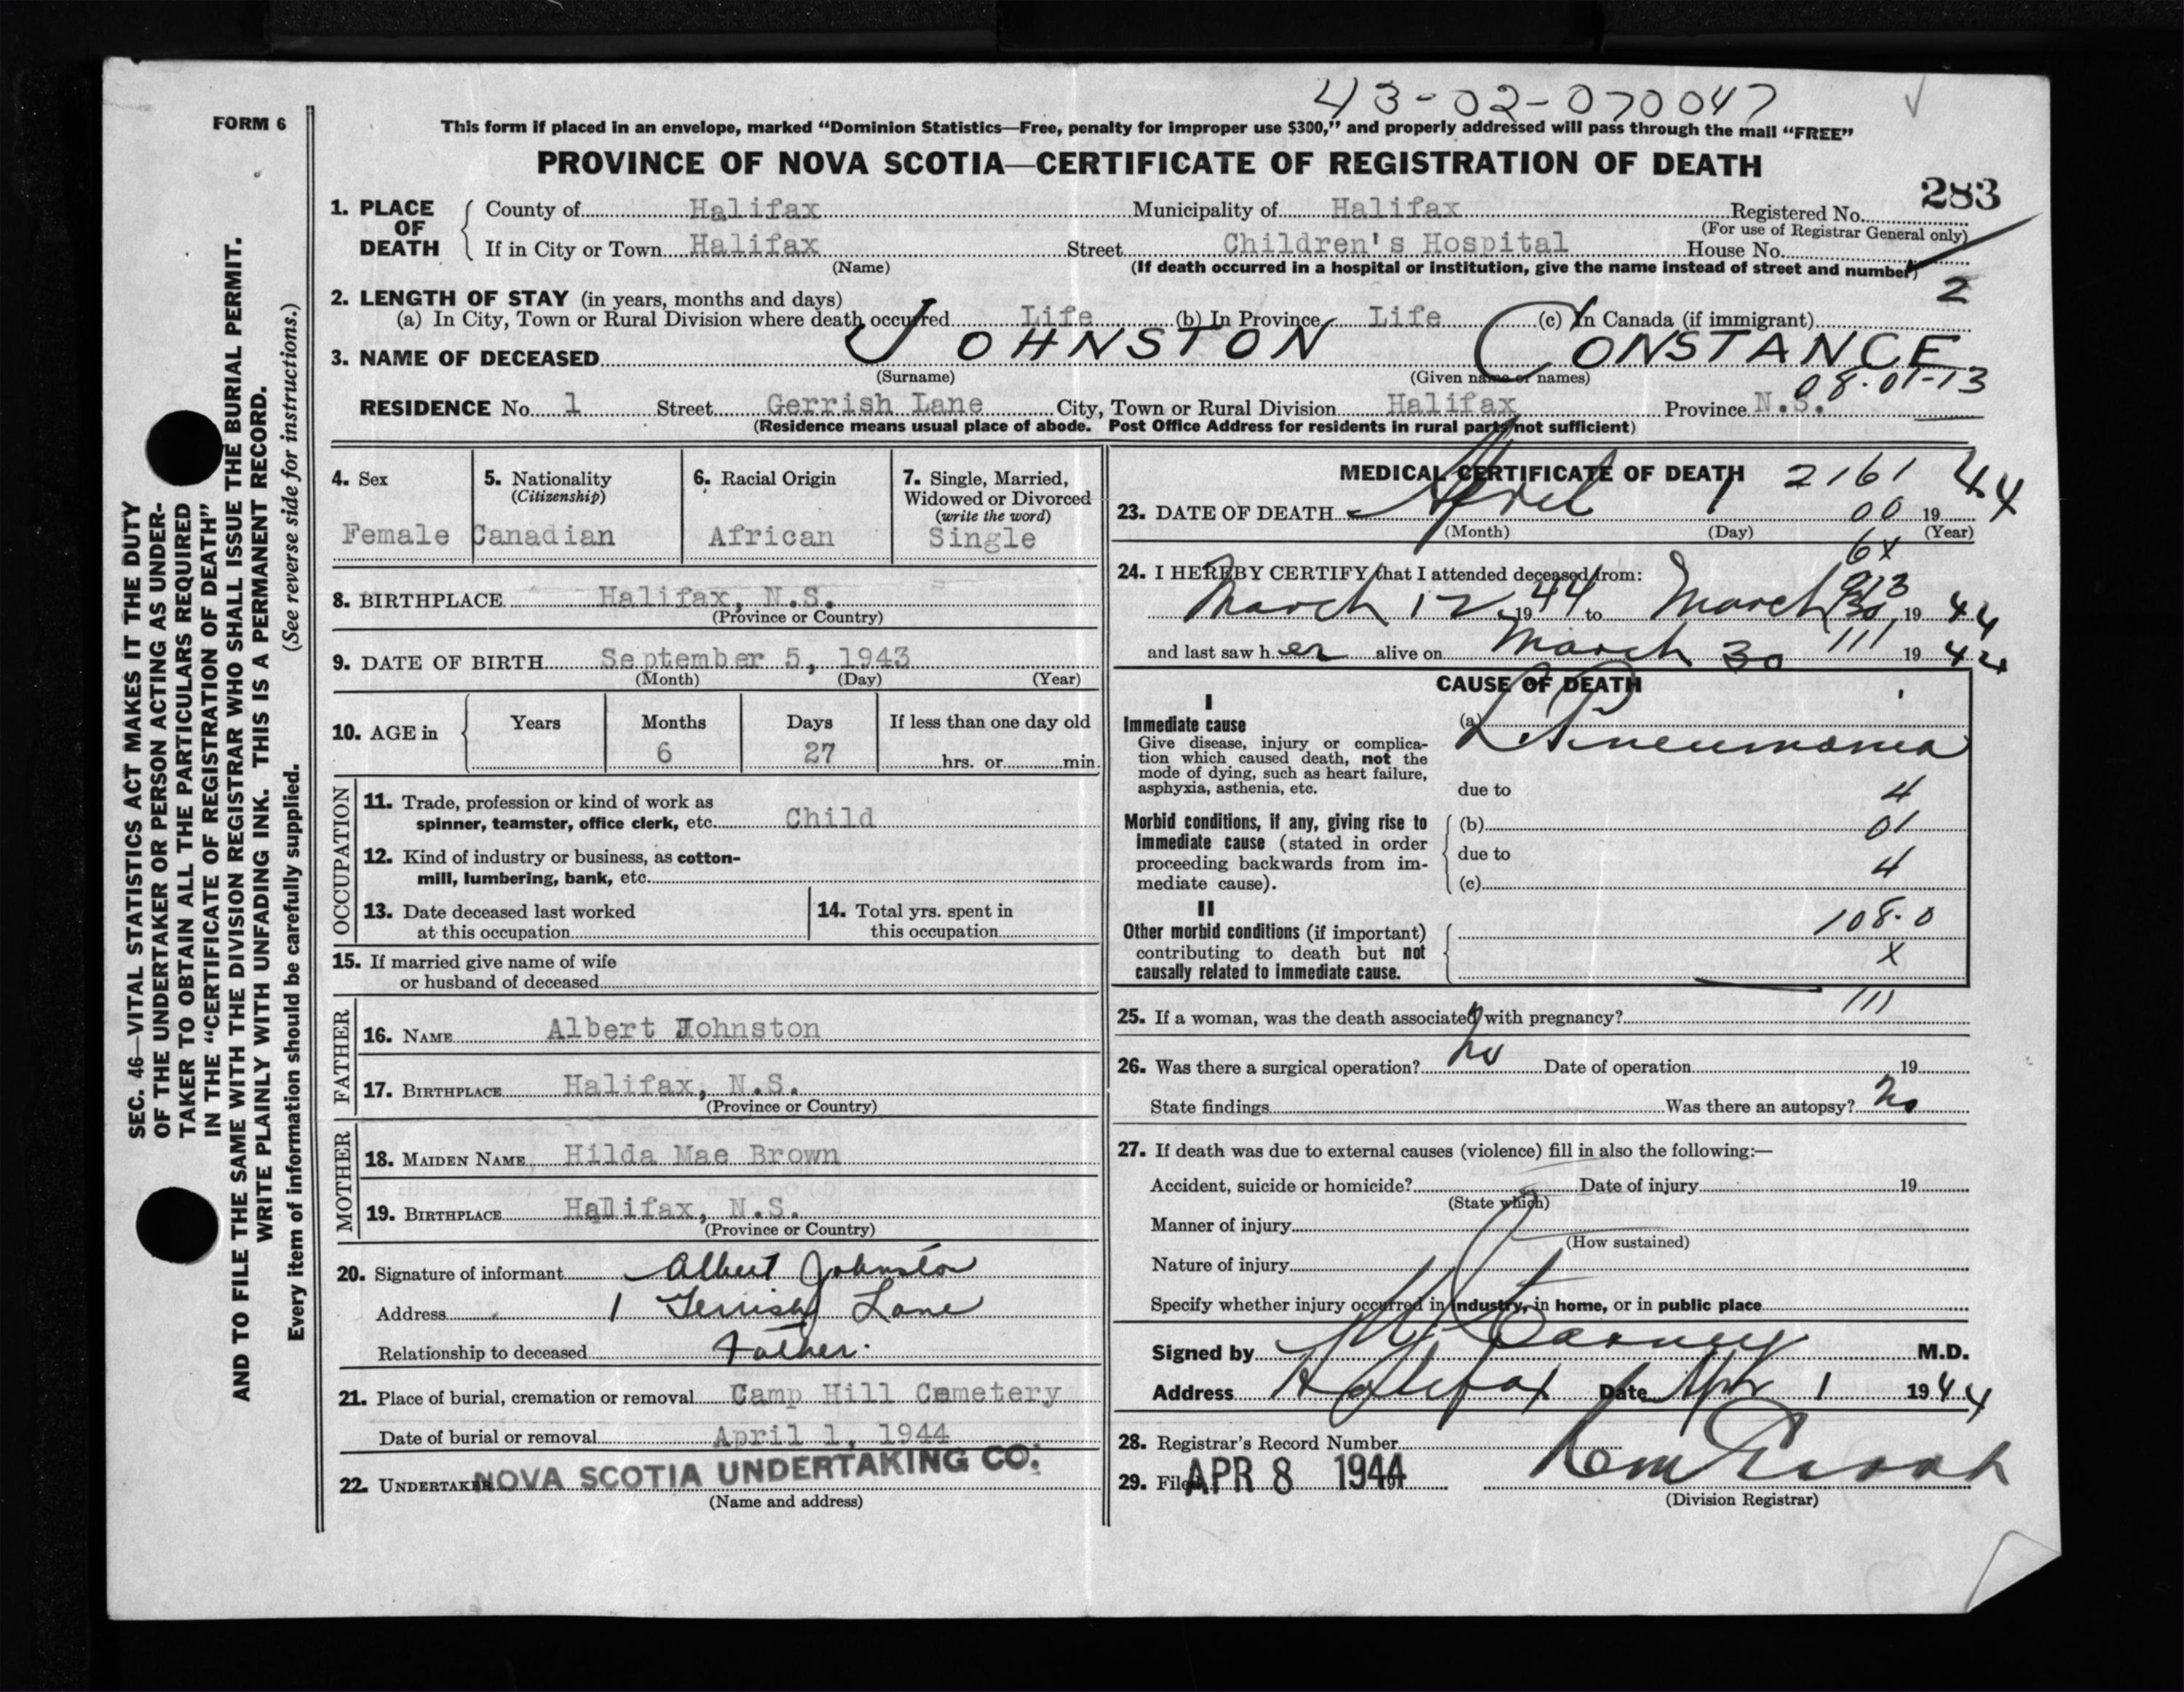 43-02-070047
FORM 6
This form if placed in an envelope, marked "Dominion Statistics—Free, penalty for improper use $300," and properly addressed will pass through the mail "FREE"
PROVINCE OF NOVA SCOTIA—CERTIFICATE OF REGISTRATION OF DEATH
283
SEC. 46—VITAL STATISTICS ACT MAKES IT THE DUTY
OF THE UNDERTAKER OR PERSON ACTING AS UNDER-
TAKER TO OBTAIN ALL THE PARTICULARS REQUIRED
IN THE "CERTIFICATE OF REGISTRATION OF DEATH"
AND TO FILE THE SAME WITH THE DIVISION REGISTRAR WHO SHALL ISSUE THE BURIAL PERMIT.
WRITE PLAINLY WITH UNFADING INK. THIS IS A PERMANENT RECORD.
Every item of information should be carefully supplied. (See reverse side for instructions.)
1. PLACE OF DEATH
County of Halifax Municipality of Halifax Registered No.
(For use of Registrar General only)
If in City or Town Halifax Street Children's Hospital House No.
(Name) (If death occurred in a hospital or institution, give the name instead of street and number)
2
2. LENGTH OF STAY (in years, months and days)
(a) In City, Town or Rural Division where death occurred Life (b) In Province Life (c) In Canada (if immigrant)
3. NAME OF DECEASED JOHNSTON CONSTANCE
(Surname) (Given name or names)
08-01-13
RESIDENCE No. 1 Street Gerrish Lane City, Town or Rural Division Halifax Province N.S.
(Residence means usual place of abode. Post Office Address for residents in rural parts not sufficient)
4. Sex
Female
5. Nationality
(Citizenship)
Canadian
6. Racial Origin
African
7. Single, Married,
Widowed or Divorced
(write the word)
Single
8. BIRTHPLACE Halifax, N.S.
(Province or Country)
9. DATE OF BIRTH September 5, 1943
(Month) (Day) (Year)
10. AGE in
Years Months Days If less than one day old
6 27 hrs. or min.
OCCUPATION
11. Trade, profession or kind of work as
spinner, teamster, office clerk, etc. Child
12. Kind of industry or business, as cotton-
mill, lumbering, bank, etc.
13. Date deceased last worked
at this occupation
14. Total yrs. spent in
this occupation
15. If married give name of wife
or husband of deceased
FATHER
16. NAME Albert Johnston
17. BIRTHPLACE Halifax, N.S.
(Province or Country)
MOTHER
18. MAIDEN NAME Hilda Mae Brown
19. BIRTHPLACE Halifax, N.S.
(Province or Country)
20. Signature of informant Albert Johnston
Address 1 Gerrish Lane
Relationship to deceased Father.
21. Place of burial, cremation or removal Camp Hill Cemetery
Date of burial or removal April 1, 1944
22. UNDERTAKER NOVA SCOTIA UNDERTAKING CO.
(Name and address)
MEDICAL CERTIFICATE OF DEATH 2161
23. DATE OF DEATH April 1 00 19 44
(Month) (Day) (Year)
6X
24. I HEREBY CERTIFY that I attended deceased from:
913
March 12 1944 to March 30, 19 44
and last saw h er alive on March 30 111 19 44
CAUSE OF DEATH
I
Immediate cause
Give disease, injury or complica-
tion which caused death, not the
mode of dying, such as heart failure,
asphyxia, asthenia, etc.
(a) L. Pneumonia
due to 4
Morbid conditions, if any, giving rise to
immediate cause (stated in order
proceeding backwards from im-
mediate cause).
(b) 01
due to 4
(c)
II
Other morbid conditions (if important)
contributing to death but not
causally related to immediate cause.
108.0
X
111
25. If a woman, was the death associated with pregnancy?
26. Was there a surgical operation? no Date of operation 19
State findings Was there an autopsy? No
27. If death was due to external causes (violence) fill in also the following:—
Accident, suicide or homicide? Date of injury 19
(State which)
Manner of injury
(How sustained)
Nature of injury
Specify whether injury occurred in industry, in home, or in public place
Signed by Carney M.D.
Address Halifax Date Apr 1 1944
28. Registrar's Record Number
29. Filed APR 8 1944
(Division Registrar)